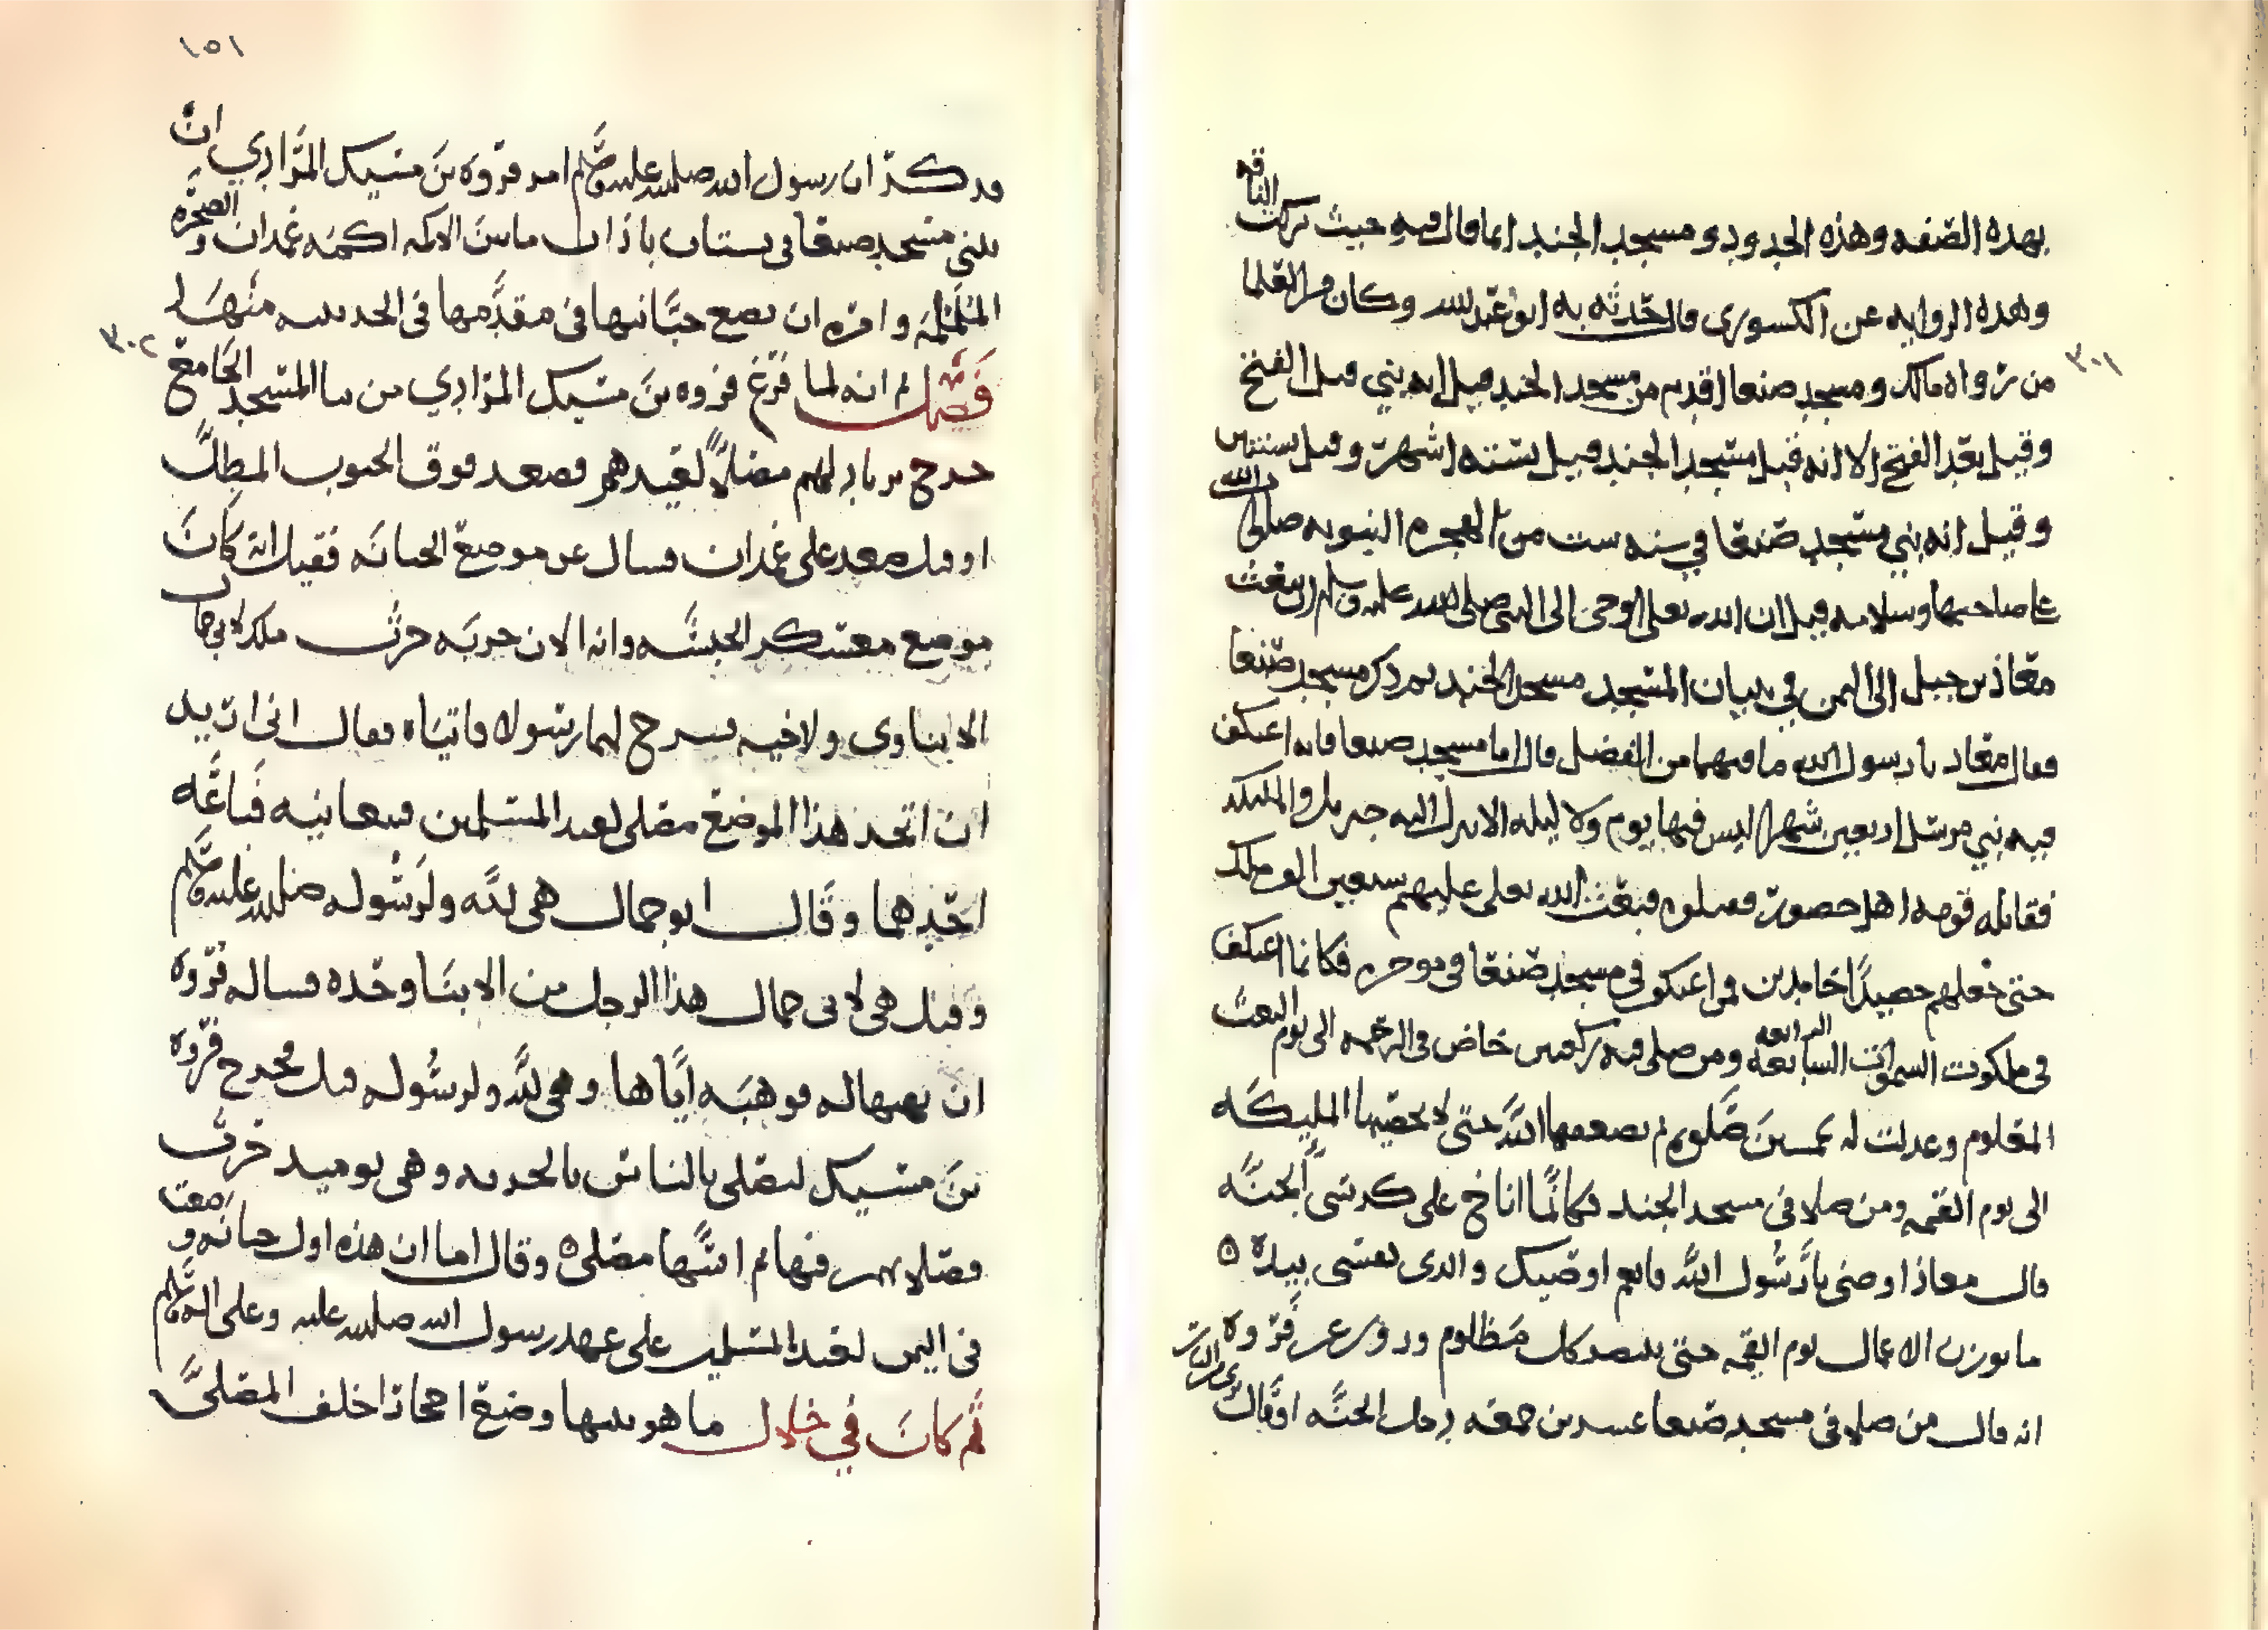 بهذه الصفه وهذه الحدود و مسجد الجند انما قال فيه حيث بركت الناقه
وهذه الروايه عن الكسورى قال حدثه به ابو عبد الله وكان من العلما
٣٠١
من رواه مالك ومسجد صنعا اقدم من مسجد الجند قيل انه بني قبل الفتح
وقيل بعد الفتح الا انه قبل مسجد الجند قيل بستة اشهر وقيل بسنتين
وقيل انه بني مسجد صنعا في سنه ست من الهجره النبويه صلى الله
على صاحبها وسلامه قيل ان الله تعلى اوحى الى النبي صلى الله عليه وسلم ان يبعث
معاذ بن جبل الى اليمن في بنيان المسجد مسجد الجند ثم ذكر مسجد صنعا
فقال معاذ يا رسول الله ما فيهما من الفضل قال اما مسجد صنعا فانه اعتكف
فيه نبي مرسل اربعين شهرا ليس فيها يوم ولا ليله الا نزل اليه جبريل والمليكه
فقاتله قومه اهل حصور فقتلوه فبعث الله تعلى عليهم سبعين الف ملك
حتى جعلهم حصيدا خامدين فمن اعتكف في مسجد صنعا في موخره فكانما اعتكف
في ملكوت السموات السابعه الرابعه ومن صلى فيه ركعتين خاض في الرحمه الى يوم البعث
المعلوم وعدلت له بخمسين صلوه ثم يضعفها الله حتى لا يحصيها المليكه
الى يوم القيمه ومن صلا في مسجد الجند فكانما اناخ على كرسي الجنه
قال معاذ اوصني يا رسول الله قال نعم اوصيك والذى نفسى بيده ٥
ما توزن الاعمال يوم القيمه حتى ينتصر كل مظلوم وروى عن فروه
انه قال من صلا في مسجد صنعا عشرين جمعه دخل الجنه او قال
١٥١
قد ذكر ان رسول الله صلى الله عليه وسلم امر فروه بن مسيك المرادي ان
يبني مسجد صنعا في بستان باذان ما بين الاكمه اكمة غمدان والصخره
الململمه وامره ان يضع جبانتها في مقدمها في الحديبيه منها
٣٠٢
فصل ثم انه لما فرغ فروه بن مسيك المرادي من بنا المسجد الجامع
خرج يرتاد لهم مصلا لعيدهم فصعد فوق الجبوب المطل
او قيل صعد على غمدان فسال عن موضع الجبانه فقيل انه كان
موضع معسكر الحبشه وانه الان خربه حرث ملك لابي جمال
الابناوى ولاخيه فسرح لهما رسولا فاتياه فقال انى اريد
ان اتخذ هذا الموضع مصلى لعيد المسلمين فبيعانيه فباعه
احدهما وقال ابو جمال هى لله ولرسوله صلى الله عليه وسلم
وقيل هى لابى جمال هذا الرجل من الابنا وحده فساله فروه
ان يهبها له فوهبه اياها وهى لله ولرسوله قيل فخرج فروه
بن مسيك ليصلى بالناس بالحربه وهى يوميذ حرث
فصلا بهم فيها ثم اسسها مصلى ٥ وقال اما ان هذه اول جبانه وضعت
في اليمن لعيد المسلمين على عهد رسول الله صلى الله عليه وعلى اله وسلم
ثم كان في خلال ما هو يبنيها وضع احجارا خلف المصلى